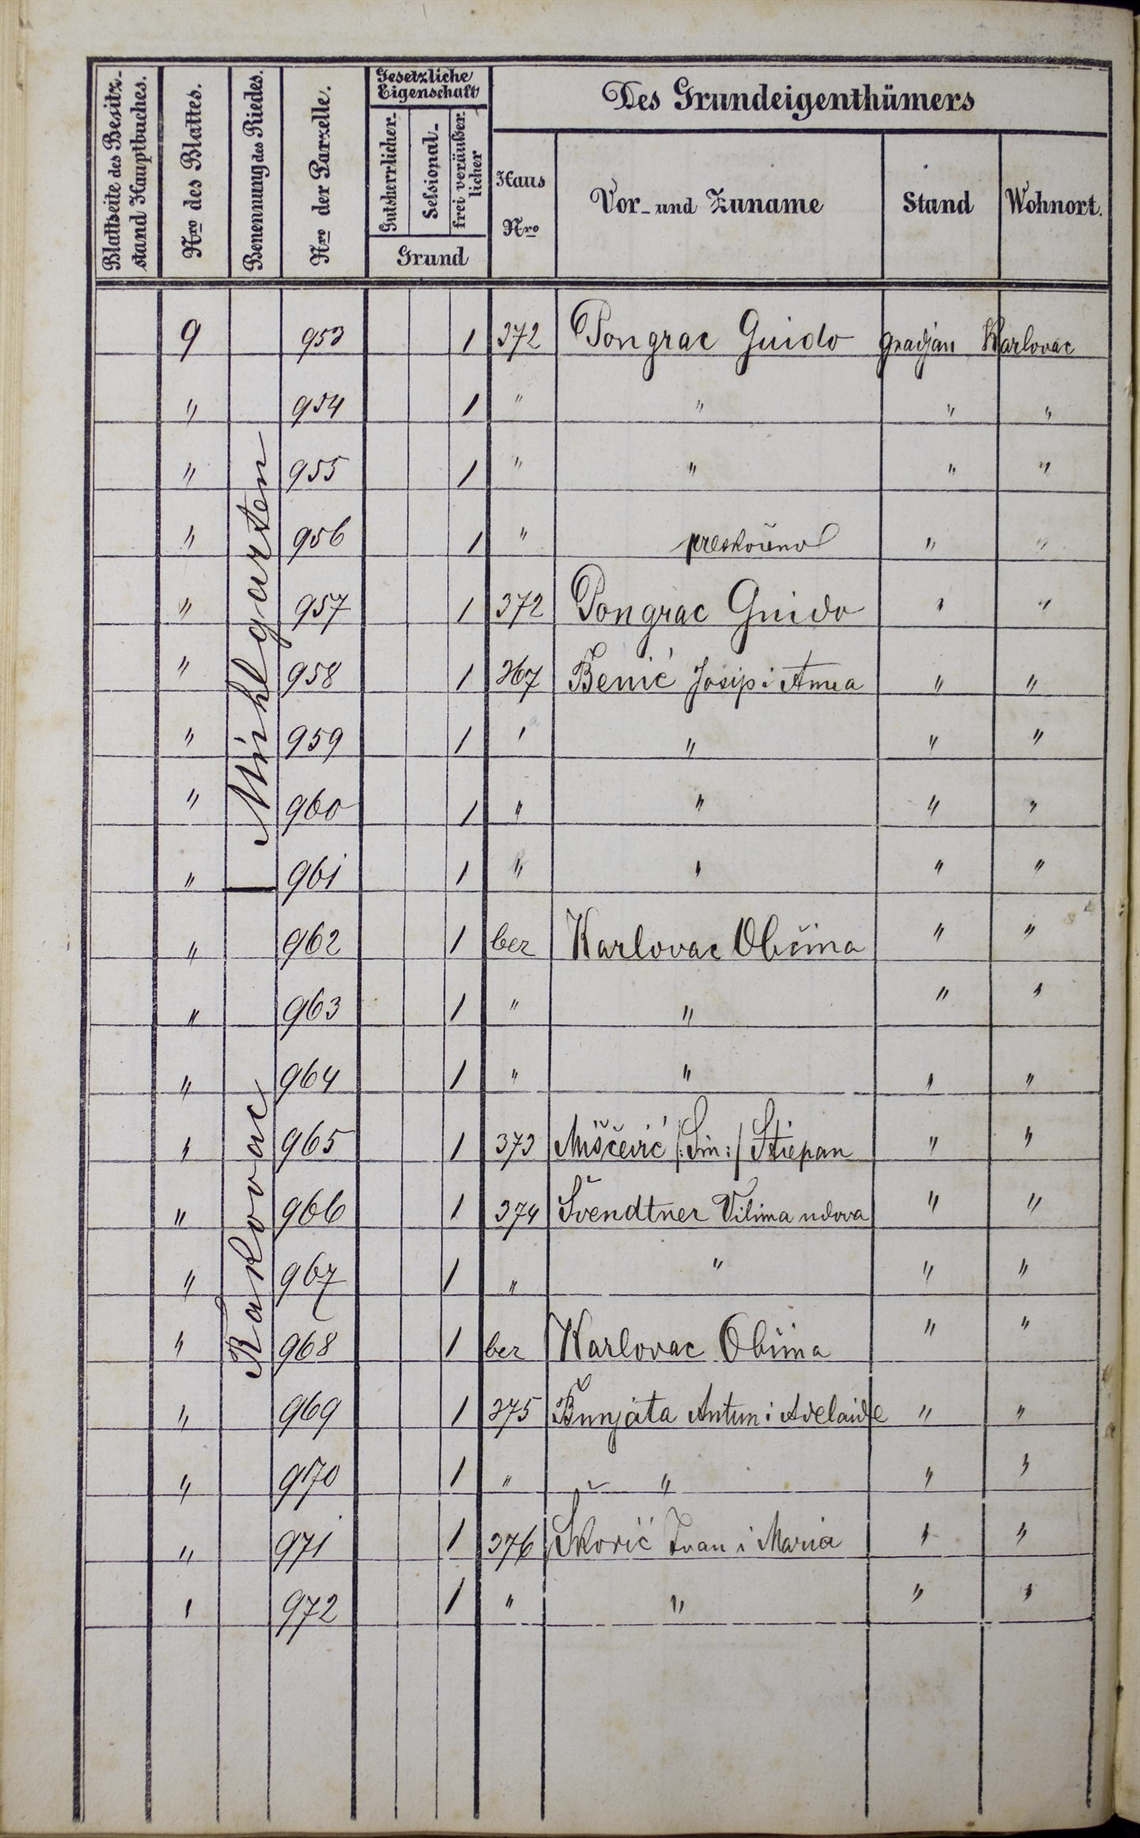 Blattseite des Besitz- stand Hauptbuches. Nro des Blattes. Benennung des Riedes. Nro der Parzelle. Gesetzliche Eigenschaft Des Grundeigenthümers
Gutsherrlicher- Sessional- frei veräußer licher Haus Nro Vor- und Zuname Stand Wohnort.
Grund
9 953 1 372 Pongrac Guido gradjan Karlovac
" 954 1 " " " "
" 955 1 " " " "
" 956 1 " preskočeno " "
" 957 1 372 Pongrac Guido " "
" 958 1 367 Benić Josip i " "
" 959 1 " " " "
" 960 1 " " " "
" 961 1 " " " "
Mühlgarten
" 962 1 bez Karlovac Občina " "
" 963 1 " " " "
" 964 1 " " " "
" 965 1 373 Miščević /:Sim:/ Stiepan " "
" 966 1 374 Švendtner Vilima udova " "
" 967 1 " " " "
" 968 1 bez Karlovac Občina " "
Rakovac
" 969 1 375 Bunjata Antun i Adelaide " "
" 970 1 " " " "
" 971 1 376 Škorić Ivan i Maria " "
" 972 1 " " " "